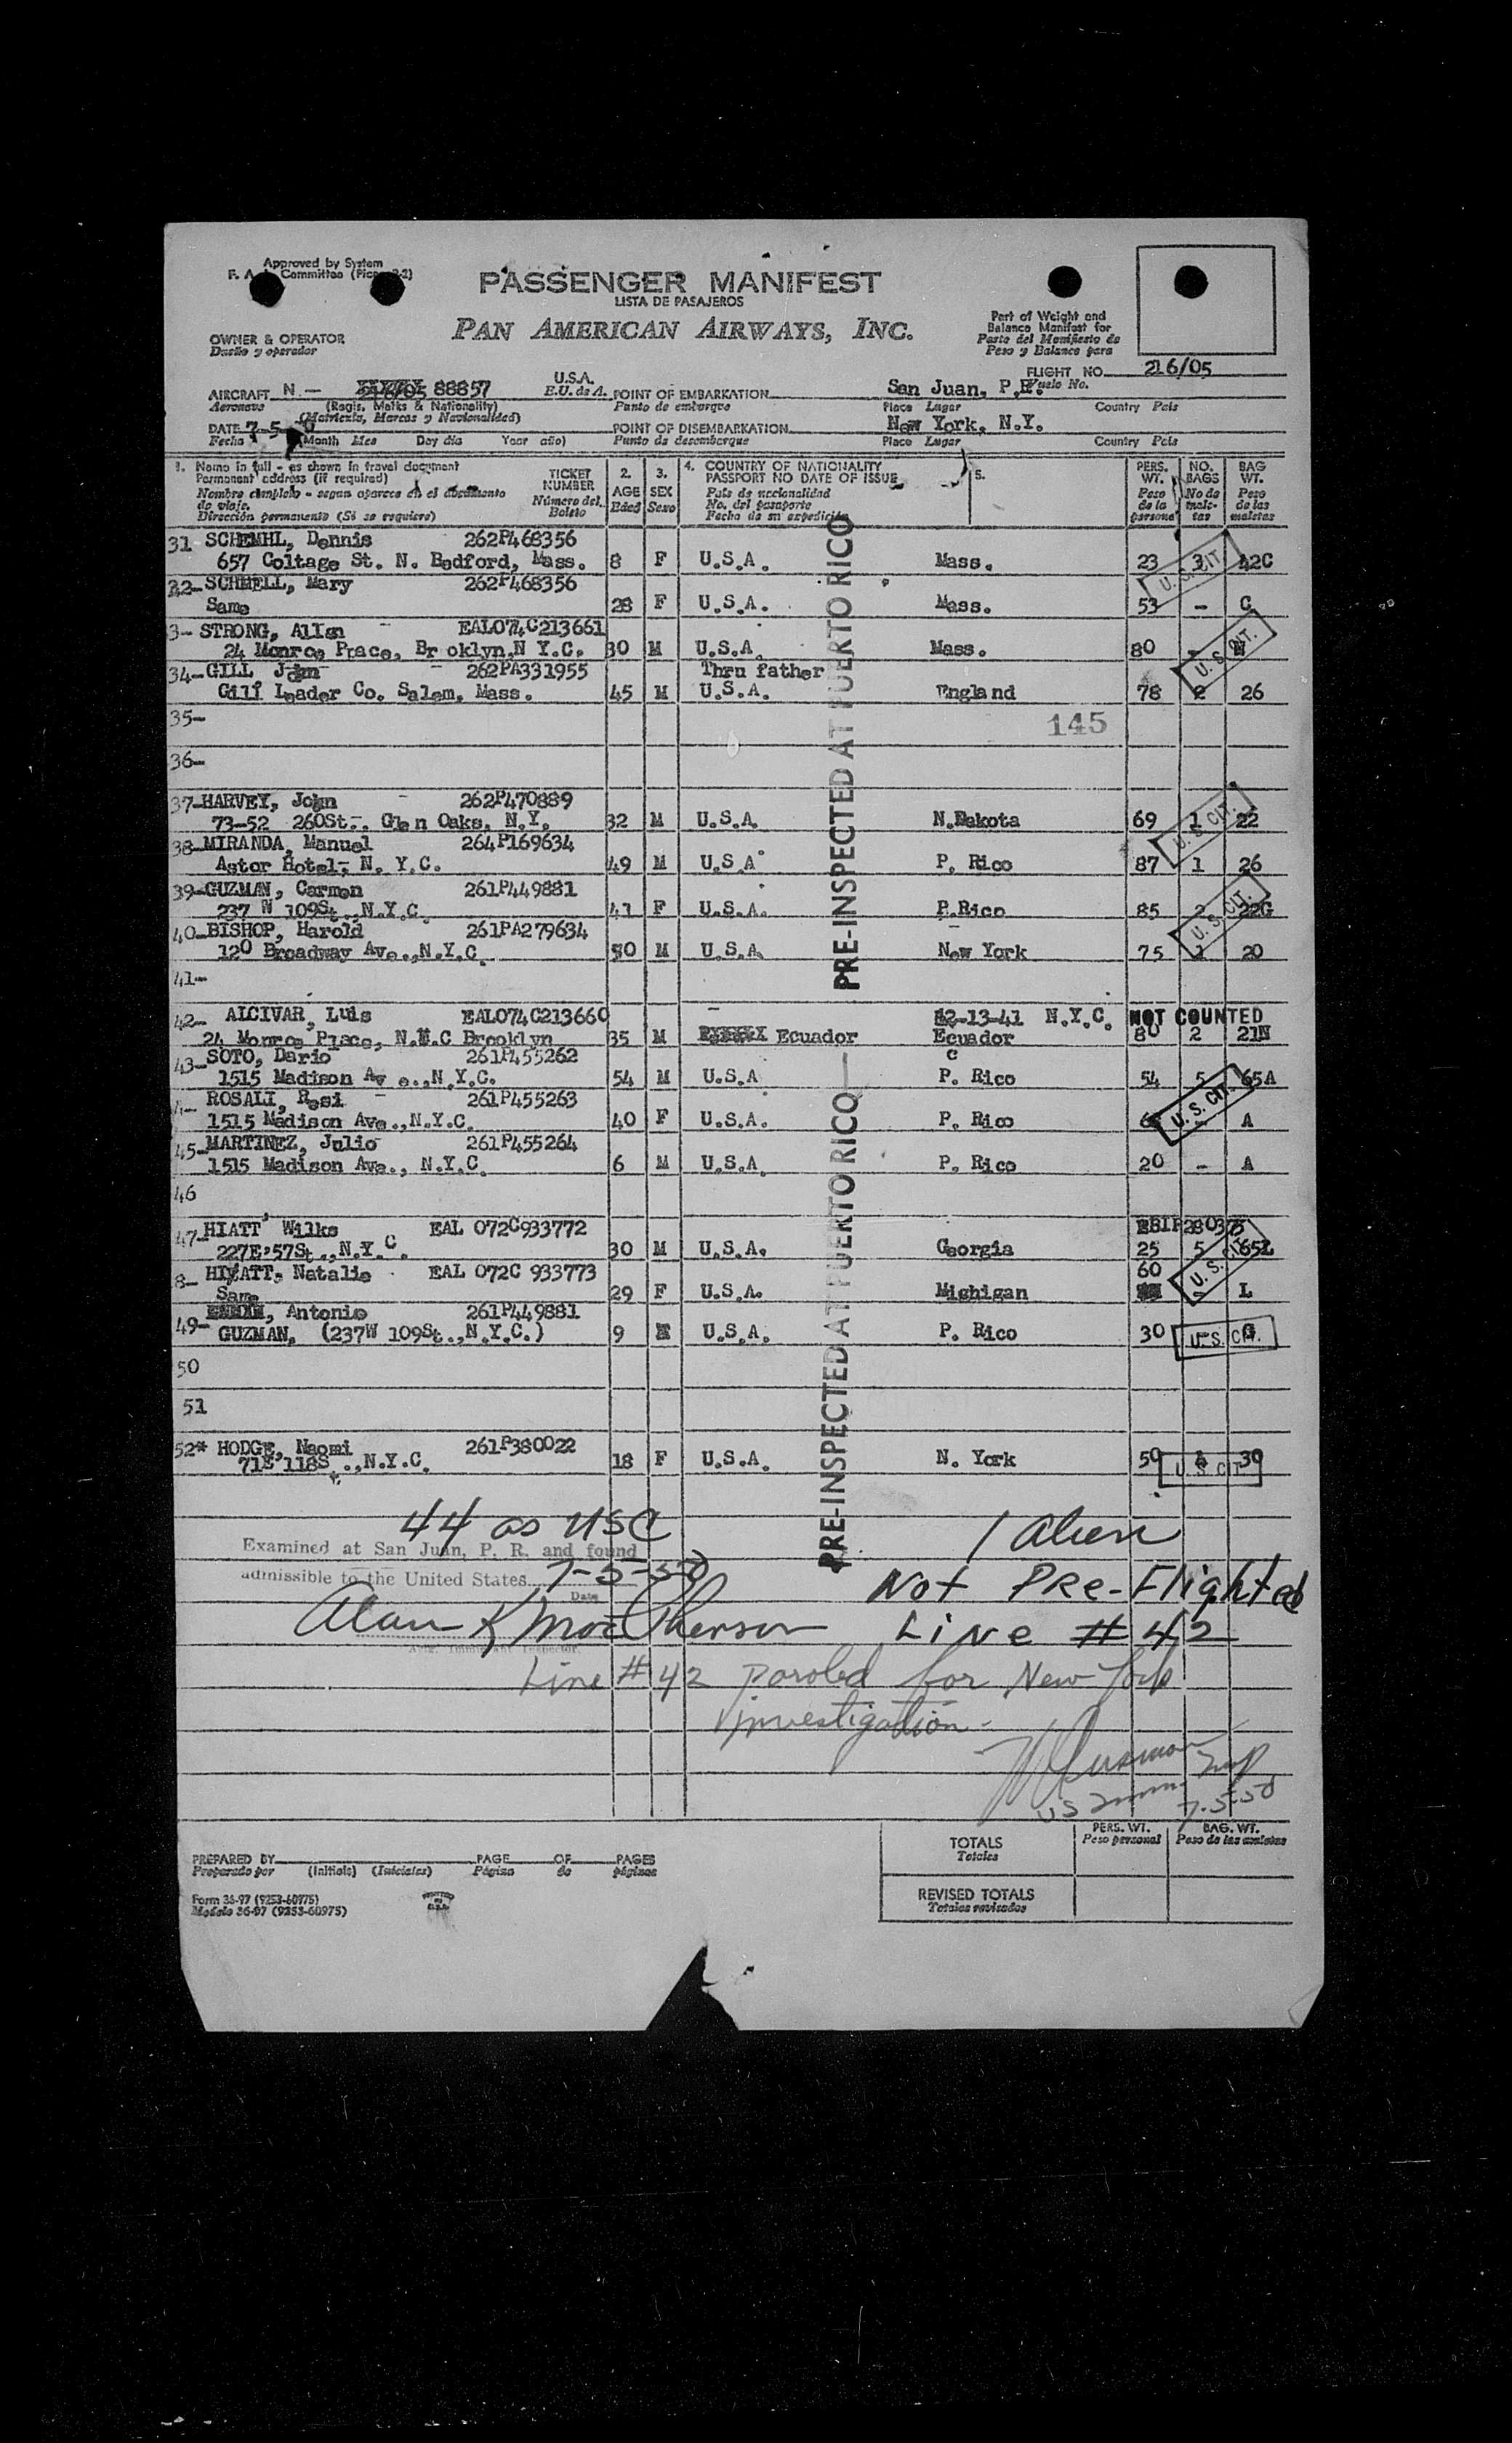 Approved by System
F. A. Committee
PASSENGER MANIFEST
LISTA DE PASAJEROS
PAN AMERICAN AIRWAYS, INC.
OWNER & OPERATOR
Dueño y operador
Part of Weight and
Balance Manifest for
Parte del Manifiesto de
Peso y Balance para
FLIGHT NO. 216/05
Vuelo No.
AIRCRAFT N — 88857 U.S.A.
Aeronave (Regis. Marks & Nationality) E.U. de A.
(Matrícula, Marcas y Nacionalidad)
POINT OF EMBARKATION San Juan, P.R.
Punto de embarque Place Lugar Country País
DATE 7-5-
Fecha (Month Mes Day día Year año)
POINT OF DISEMBARKATION New York, N.Y.
Punto de desembarque Place Lugar Country País
1. Name in full - as shown in travel document
Permanent address (if required)
Nombre completo - según aparece en el documento
de viaje.
Dirección permanente (Si se requiere)
TICKET
NUMBER
Número del
Boleto
2.
AGE
Edad
3.
SEX
Sexo
4. COUNTRY OF NATIONALITY
PASSPORT NO DATE OF ISSUE
País de nacionalidad
No. del pasaporte
Fecha de su expedición
5.
PERS.
WT.
Peso
de la
persona
NO.
BAGS
No de
male-
tas
BAG
WT.
Peso
de las
maletas
31 SCHEMHL, Dennis 262P468356
657 Coltage St. N. Bedford, Mass. 8 F U.S.A. Mass. 23 3 42C
32- SCHMELL, Mary 262P468356
Same 28 F U.S.A. Mass. 53 - C
3- STRONG, Allen EAL074C213661
24 Monroe Prace, Br oklyn,N Y.C. 30 M U.S.A. Mass. 80 - N
34- GILL John 262PA331955 Thru father
Gill Leader Co. Salem, Mass. 45 M U.S.A. England 78 2 26
35- 145
36-
37- HARVEY, John 262P470889
73-52 260St., Glen Oaks, N.Y. 32 M U.S.A. N.Dakota 69 1 22
38- MIRANDA, Manuel 264P169634
Astor Hotel, N. Y.C. 49 M U.S.A P. Rico 87 1 26
39- GUZMAN, Carmen 261P449881
237 W 109St., N.Y.C. 41 F U.S.A. P.Rico 85 2 22G
40- BISHOP, Harold 261PA279634
120 Broadway Ave.,N.Y.C. 50 M U.S.A. New York 75 1 20
41-
42- ALCIVAR, Luis EAL074C213660 12-13-41 N.Y.C. NOT COUNTED
24 Monroe Place, N.Y.C Brooklyn 35 M Ecuador Ecuador 80 2 21N
43- SOTO, Dario 261P455262
1515 Madison Av e.,N.Y.C. 54 M U.S.A P. Rico 54 5 65A
ROSALI, Rosi 261P455263
1515 Madison Ave.,N.Y.C. 40 F U.S.A. P. Rico - A
45- MARTINEZ, Julio 261P455264
1515 Madison Ave., N.Y.C. 6 M U.S.A. P. Rico 20 - A
46
47- HIATT, Wilks EAL 072C933772
227E'57St.,N.Y.C. 30 M U.S.A. Georgia 25 5 65L
8- HIYATT, Natalie EAL 072C 933773 60
Same 29 F U.S.A. Michigan - L
49- Antonio 261P449881
GUZMAN, (237W 109St.,N.Y.C.) 9 U.S.A. P. Rico 30 - G
50
51
52* HODGE, Naomi 261P380022
71E'118St.,N.Y.C. 18 F U.S.A. N. York 50 30
PRE-INSPECTED AT PUERTO RICO
PRE-INSPECTED AT PUERTO RICO
PRE-INSPECTED AT PUERTO RICO
U. S. CIT.
U. S. CIT.
U. S. CIT.
U. S. CIT.
U. S. CIT.
U. S. CIT.
U. S. CIT.
U. S. CIT.
44 as USC 1 alien
Examined at San Juan, P. R. and found
admissible to the United States 7-5-50
Date
Not Pre-Flighted
Alan K MacPherson Line # 42
Immigrant Inspector.
Line # 42 paroled for New York
investigation.
US Imm. Insp
7-5-50
PREPARED BY PAGE OF PAGES
Preparado por (Initials) (Iniciales) Página de páginas
TOTALS
Totales
PERS. WT.
Peso personal
BAG. WT.
Peso de las maletas
REVISED TOTALS
Totales revisados
Form 36-97 (9253-60975)
Modelo 36-97 (9253-60975)